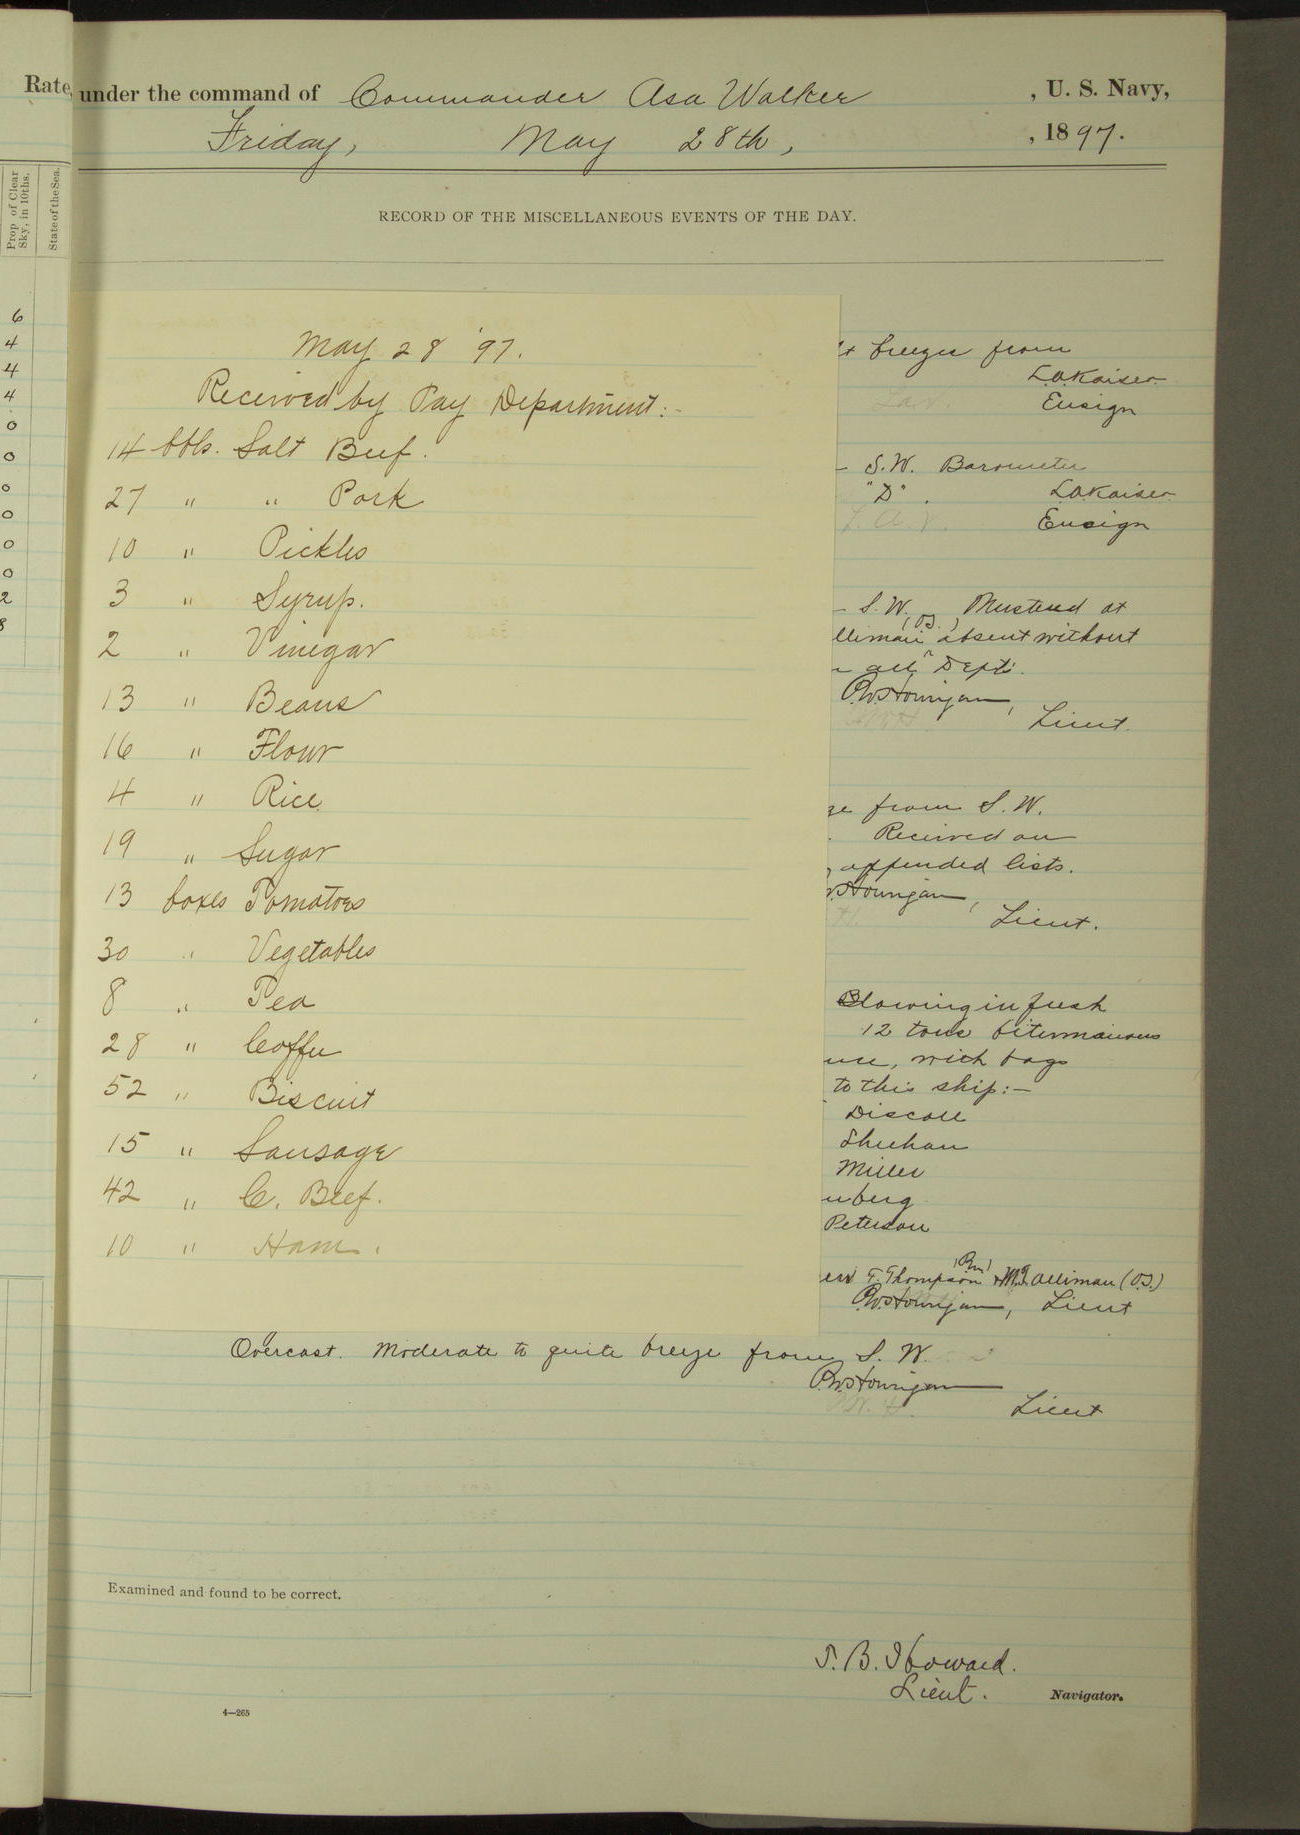 Rate, under the command of Commander Asa Walker, U. S. Navy,
Friday, May 28th, , 1897.
Prop of Clear Sky, in 10ths.
State of the Sea.
RECORD OF THE MISCELLANEOUS EVENTS OF THE DAY.
6
4
4
4
0
0
0
0
0
0
2
8
May 28 '97.
Received by Pay Department:-
14 bbls. Salt Beef.
27 " " Pork
10 " Pickles
3 " Syrup.
2 " Vinegar
13 " Beans
16 " Flour
4 " Rice
19 " Sugar
13 boxes Tomatoes
30 " Vegetables
8 " Tea
28 " Coffee
52 " Biscuit
15 " Sausage
42 " C. Beef.
10 " Ham.
breeze from
L.A. Kaiser
Ensign
S.W. Barometer
"D".
L.A. Kaiser
Ensign
S.W. Mustered at
(O.S.)
lliman absent without
all Dept.
P.W. Hourigan,
Lieut.
ze from S.W.
Received on
appended lists.
W. Hourigan,
Lieut.
Blowing in fresh
12 tons bitermainous
with bags
to this ship:-
Discoll
Sheehan
Miller
nberg
Peterson
T. Thompson Alliman (O.S.)
P.W. Hourigan, Lieut
Overcast. Moderate to quite breeze from S. W.
P.W. Hourigan
Lieut
Examined and found to be correct.
T. B. Howard.
Lieut. Navigator.
4—265